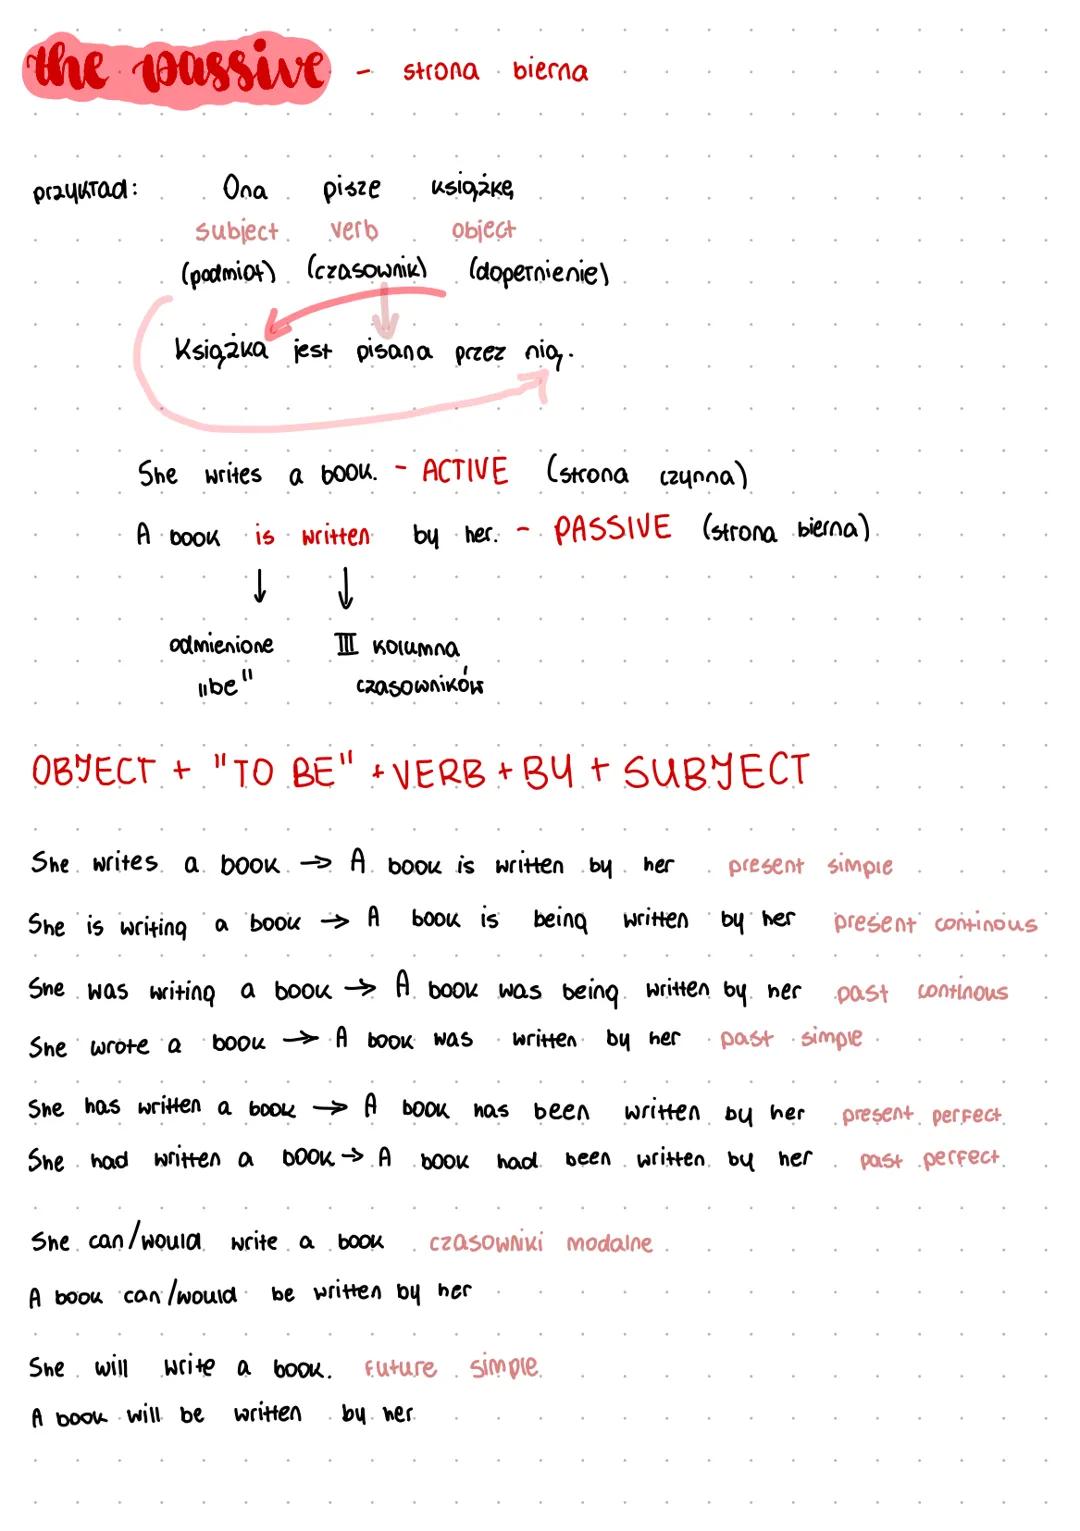 the passive - strona bierna
przykład: Ona pisze książkę
subject verb object
(podmiot) (czasownik) (dopełnienie)
Książka jest pisana przez nią.
She writes a book. - ACTIVE (strona czynna)
A book is written by her. - PASSIVE (strona bierna)
↓ ↓
odmienione III kolumna
„be" czasowników
OBJECT + "TO BE" + VERB + BY + SUBJECT
She writes a book → A book is written by her present simple
She is writing a book → A book is being written by her present continous
She was writing a book → A book was being written by her past continous
She wrote a book → A book was written by her past simple
She has written a book → A book has been written by her present perfect
She had written a book → A book had been written by her past perfect
She can/would write a book czasowniki modalne
A book can/would be written by her
She will write a book. future simple
A book will be written by her